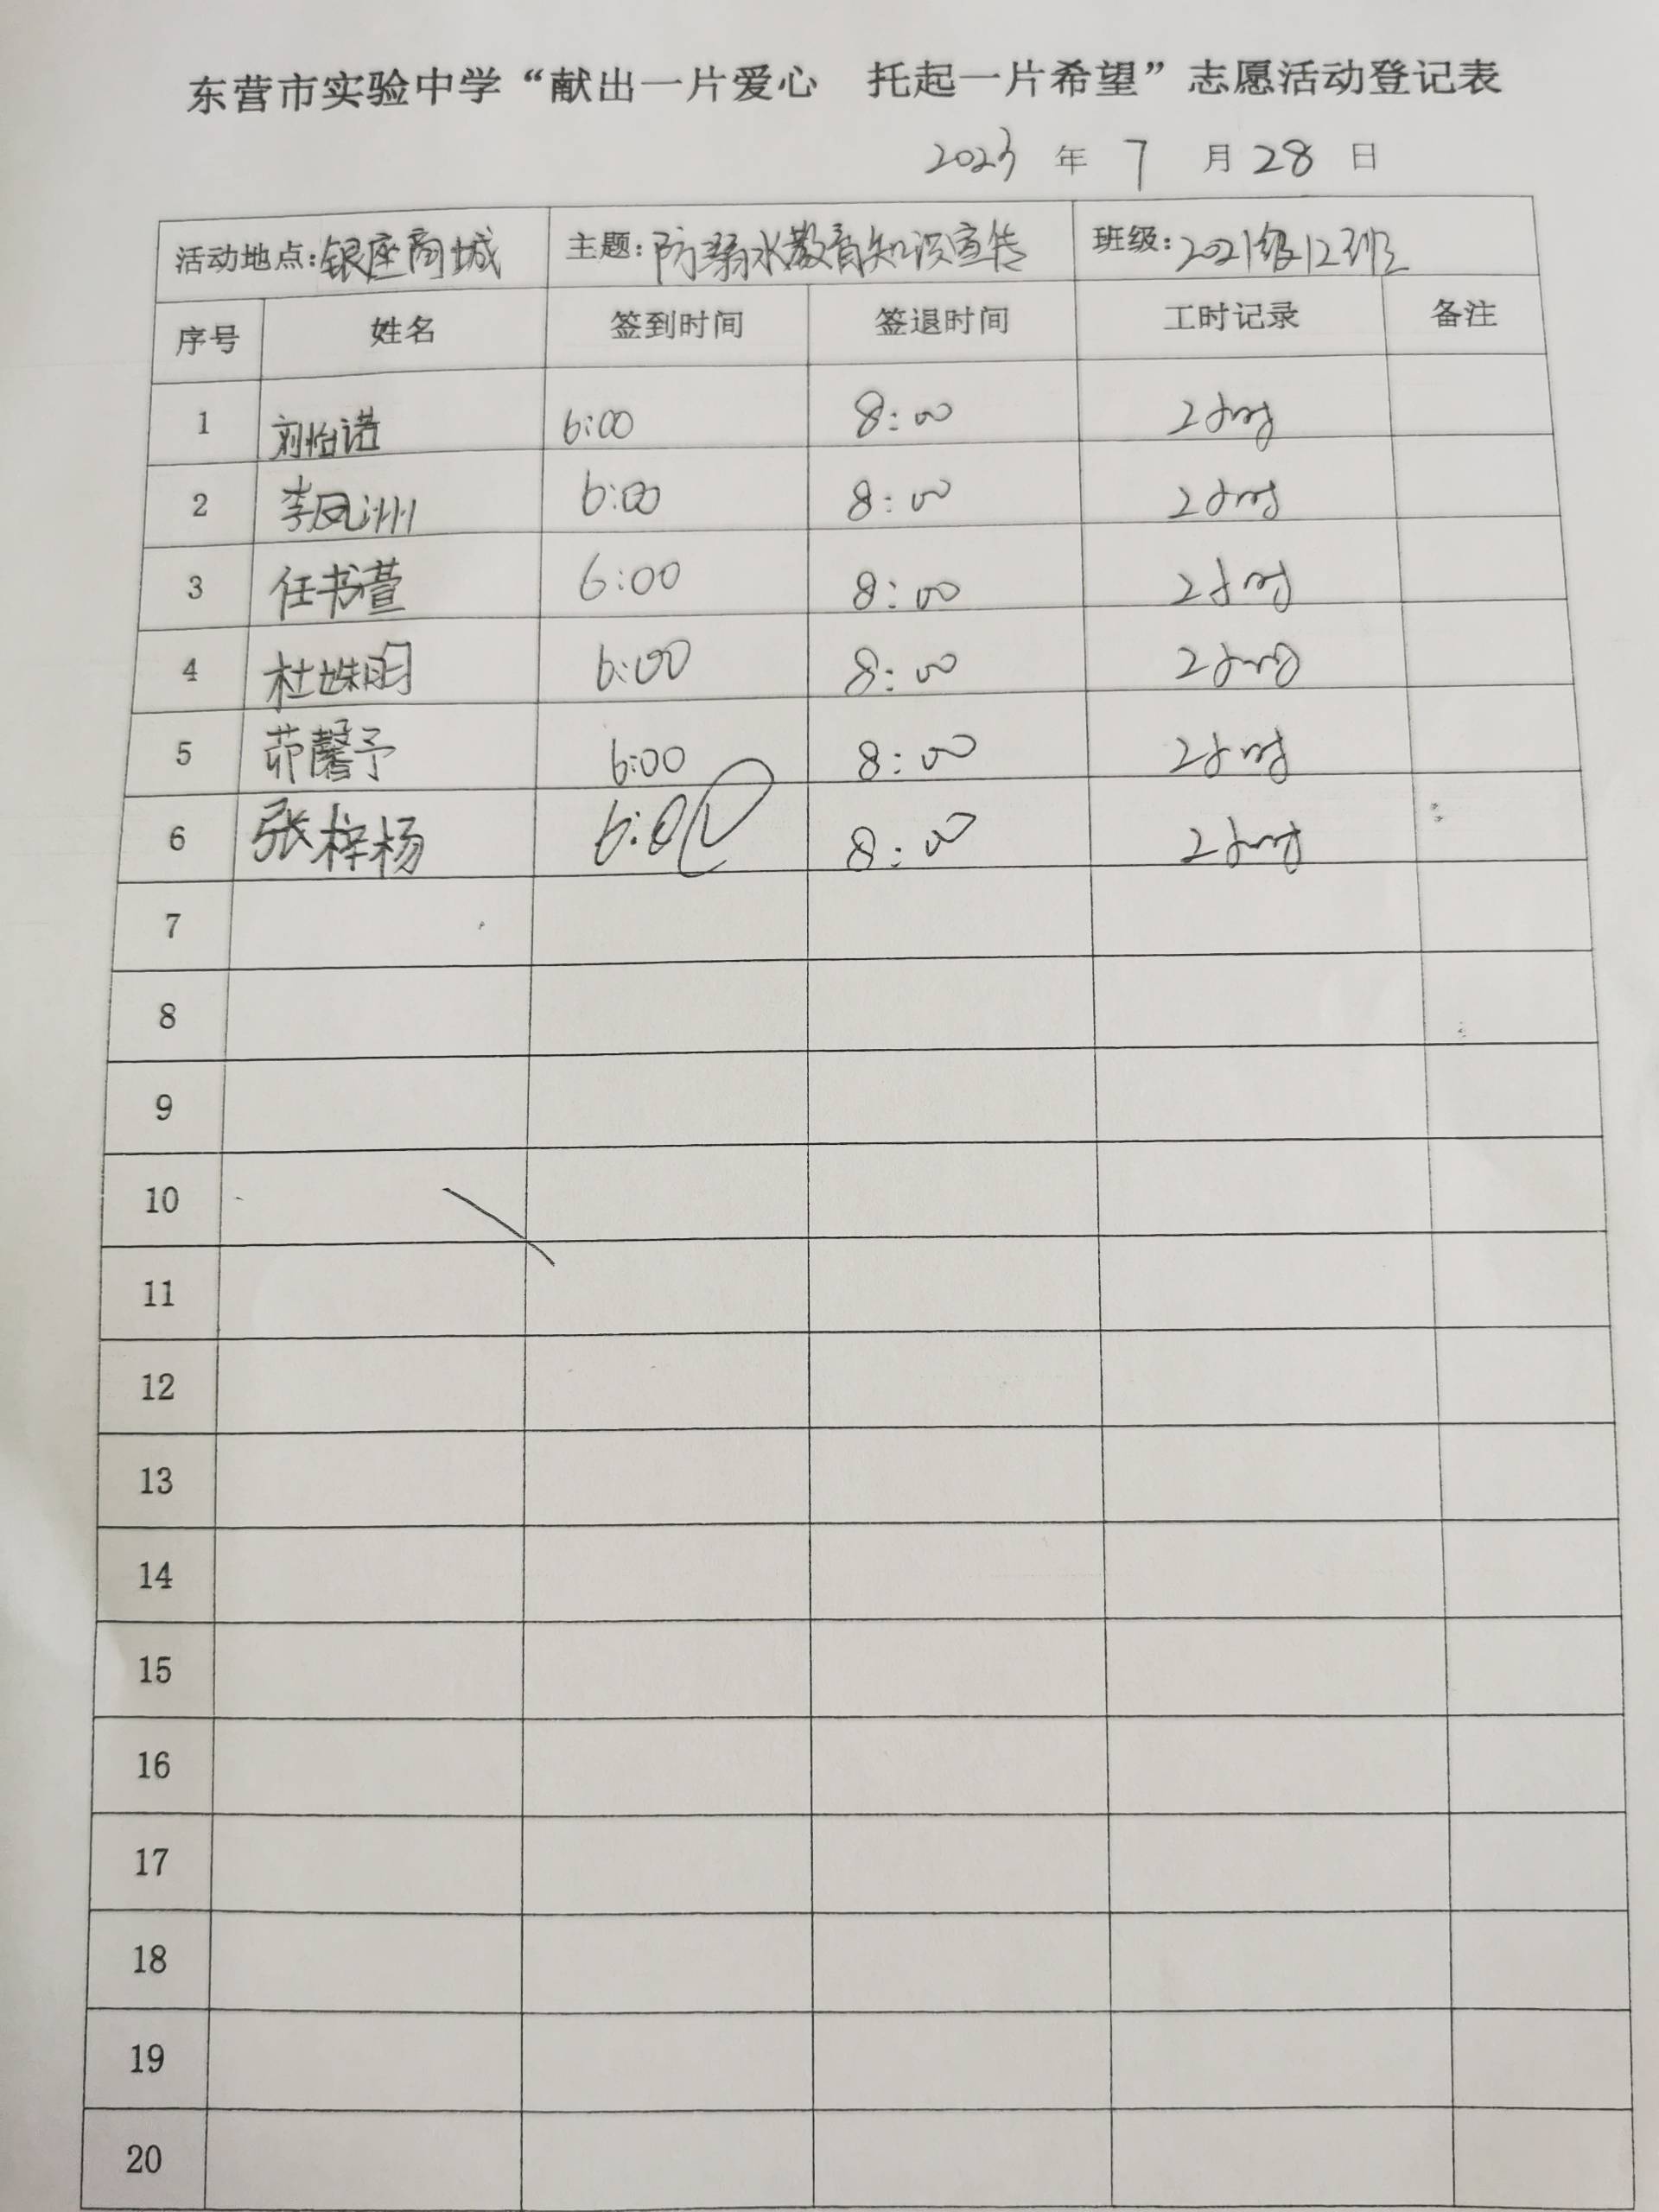 东营市实验中学“献出一片爱心 托起一片希望”志愿活动登记表
2023 年 7 月 28 日
活动地点:银座商城 主题:防溺水教育知识宣传 班级:2021级12班
序号 姓名 签到时间 签退时间 工时记录 备注
1 刘怡诺 6:00 8:00 2小时
2 李凤洲 6:00 8:00 2小时
3 任书萱 6:00 8:00 2小时
4 杜姝玥 6:00 8:00 2小时
5 茆馨予 6:00 8:00 2小时
6 张梓杨 6:00 8:00 2小时
7
8
9
10
11
12
13
14
15
16
17
18
19
20